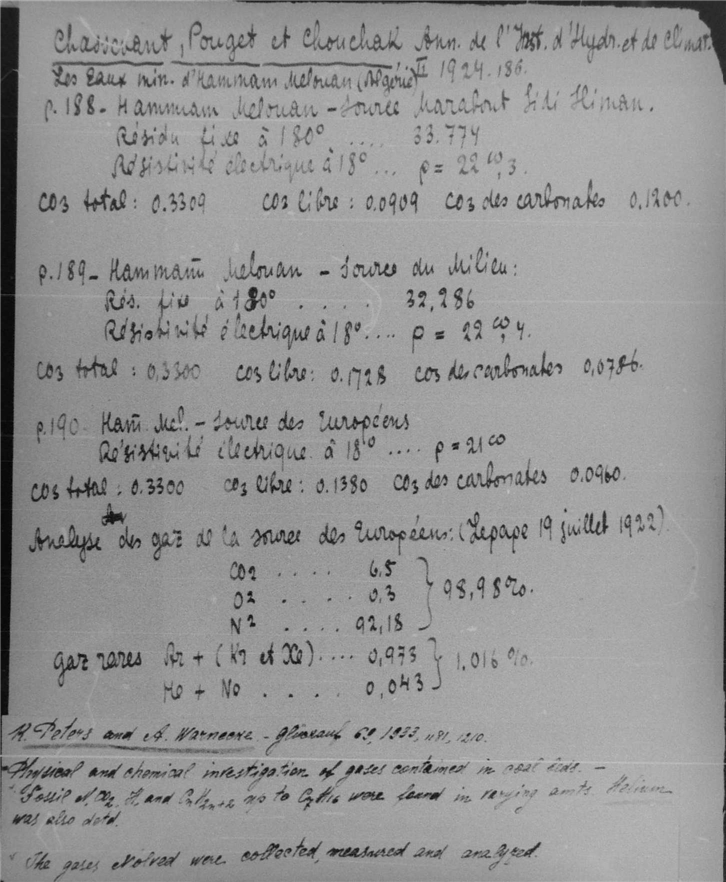 Chassevant, Pouget et Chouchak Ann. de l'Inst. d'Hydr. et de Climat.
Les Eaux min. d'Hammam Melouan (Algérie) II 1924.186.
p.188 - Hammam Melouan - Source Marabout Sidi Sliman.
Résidu fixe à 180° .... 33.774
Résistivité électrique à 18° ... ρ = 22 ω, 3.
CO3 total : 0.3309 CO3 libre : 0.0909 CO3 des carbonates 0.1200.
p.189 - Hammam Melouan - Source du Milieu :
Rés. fixe à 180° ..... 32,286
Résistivité électrique à 18° .... ρ = 22 ω, 4.
CO3 total : 0,3300 CO3 libre : 0.1728 CO3 des carbonates 0,0786.
p.190 Ham. Mel. - Source des Européens
Résistivité électrique à 18° .... ρ = 21 ω
CO3 total : 0.3300 CO3 libre : 0.1380 CO3 des carbonates 0.0960.
Analyse des gaz de la source des Européens : (Lepape 19 juillet 1922)
CO2 .... 6,5
O2 ..... 0,3 98,98%.
N2 .... 92,18
gaz rares Ar + (Kr et Xe) .... 0,973 1.016%.
He + Ne ..... 0,043
K. Peters and A. Warnecke - Glückauf 69, 1933, 1181, 1210.
Physical and chemical investigation of gases contained in coal beds. -
Fossil N, CO2, H, and CnH2n+2 up to C7H16 were found in varying amts. Helium
was also detd.
The gases evolved were collected, measured and analyzed.